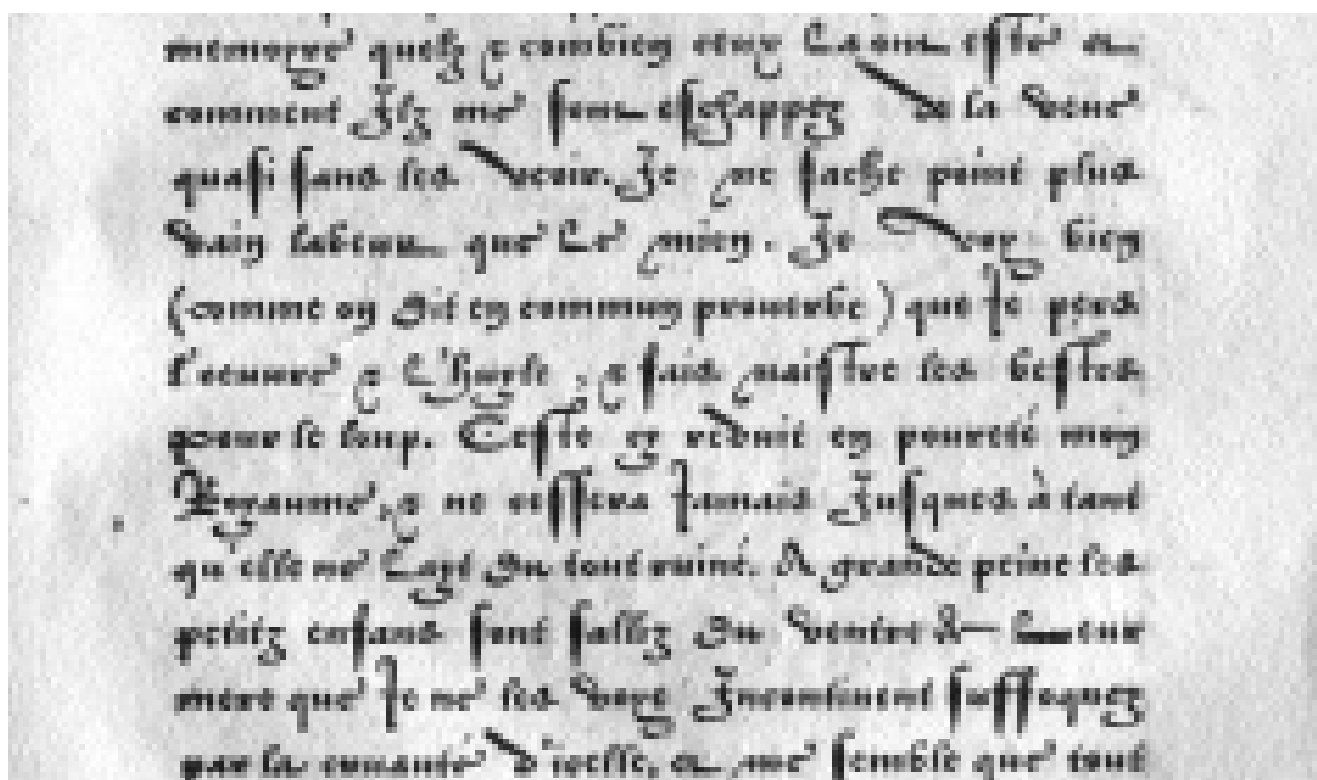 memoyre quelz & combien ceux La ont esté et
comment Ilz me sont eschappez de la veue
quasi sans les veoir. Je ne sache point plus
vain labeur que Le mien. Je voy bien
(comme on dit en commun prouerbe) que Je pers
l'oeuure & L'huyle, & fais naistre les bestes
pour le loup. Ceste cy reduit en poureté mon
Royaume, & ne cessera Jamais Jusques à tant
qu'elle ne Layt du tout ruiné. A grande peine les
petitz enfans sont sailliz du ventre de Leur
mere que Je ne les voye Incontinent suffoquez
par la cruauté d'icelle, et me semble que tout